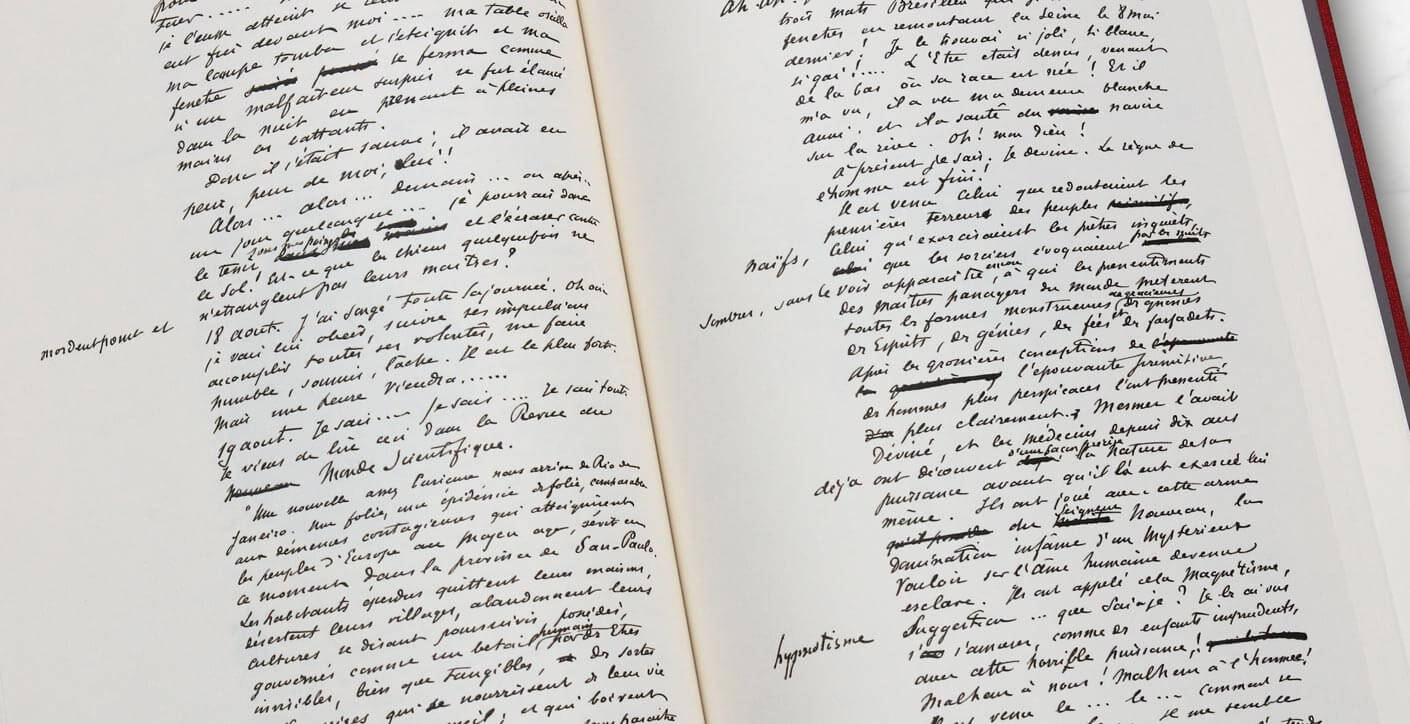 tuer.....
je l'eusse atteint se
eut fui devant moi.... ma table oscilla
ma lampe tomba et s'éteignit et ma
fenêtre se ferma comme
si un malfaiteur surpris se fut élancé
dans la nuit en prenant à pleines
mains les battants.
Donc il s'était sauvé; il avait eu
peur, peur de moi, lui!!
Alors... alors... demain... ou après..
un jour quelconque... je pourrai donc
le tenir, sous mes poings et l'écraser contre
le sol! Est-ce que les chiens quelquefois ne
mordent point et
n'étranglent pas leurs maîtres?
18 aout. J'ai songé toute la journée. Oh oui
je vais lui obéir, suivre ses impulsions
accomplir toutes ses volontés, me faire
humble, soumis, lâche. Il est le plus fort.
Mais une heure viendra......
19 aout. Je sais... Je sais.... Je sais tout.
Je viens de lire ceci dans la Revue du
Nouveau Monde Scientifique.
"Une nouvelle assez curieuse nous arrive de Rio de
Janeiro. Une folie, une épidémie de folie, comparable
aux démences contagieuses qui atteignirent
les peuples d'Europe au Moyen age, sévit en
ce moment dans la province de San-Paulo.
Les habitants éperdus quittent leurs maisons,
désertent leurs villages, abandonnent leurs
cultures se disant poursuivis, possédés,
gouvernés comme un betail humain par des Etres
invisibles, bien que tangibles, des sortes
qui se nourrissent de leur vie
; et qui boivent
trois mats Brésilien qui
fenêtres en remontant la Seine le 8 mai
dernier! Je le trouvai si joli, si blanc,
si gai!.... L'Etre était dessus, venant
de la bas où sa race est née! Et il
m'a vu, il a vu ma demeure blanche
aussi. et il a sauté du navire
sur la rive. Oh! mon Dieu!
A présent je sais. Je devine. Le règne de
l'homme est fini!
Il est venu Celui que redoutaient les
premières terreurs des peuples
naïfs, Celui qu'exorcisaient les prêtres inquiets,
que les sorciers évoquaient par les nuits
sombres, sans le voir apparaître encore, à qui les pressentiments
des Maîtres passagers du Monde prêtèrent
toutes les formes monstrueuses ou gracieuses des gnomes
des Esprits, des génies, des fées et des farfadets.
Après les grossières conceptions de l'épouvante
l'épouvante primitive,
des hommes plus perspicaces l'ont pressenti
plus clairement. Mesmer l'avait
Déviné, et les médecins depuis dix ans
déjà ont découvert d'une façon précise la Nature de sa
puissance avant qu'il l'a eut exercée lui
même. Ils ont joué avec cette arme
qu'il possède du Seigneur Nouveau, la
Domination infâme d'un Mystérieux
Vouloir sur l'âme humaine devenue
esclave. Ils ont appelé cela Magnétisme,
hypnotisme
Suggestion... que sais-je? Je les ai vus
s'amuser, comme des enfants imprudents,
avec cette horrible puissance!
Malheur à nous! Malheur à l'homme!
Il est venu le... le... comment se
je me semble